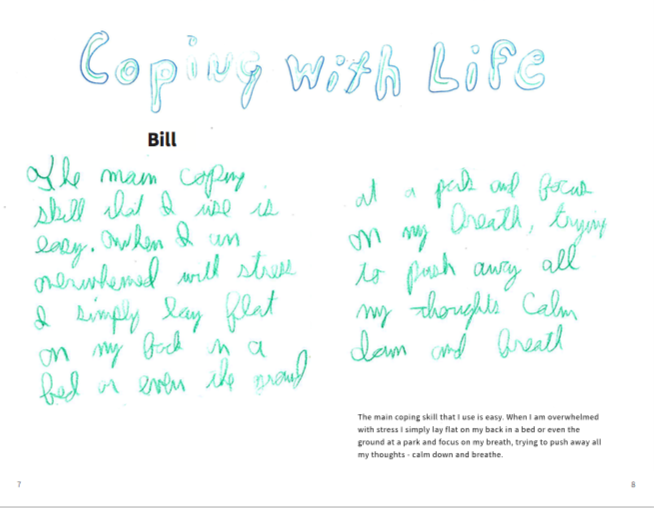 Coping With Life
Bill
The main coping
skill that I use is
easy. When I am
overwhemed with stress
I simply lay flat
on my back in a
bed or even the ground
at a park and focus
on my breath, trying
to push away all
my thoughts Calm
down and breath
The main coping skill that I use is easy. When I am overwhelmed
with stress I simply lay flat on my back in a bed or even the
ground at a park and focus on my breath, trying to push away all
my thoughts - calm down and breathe.
7
8